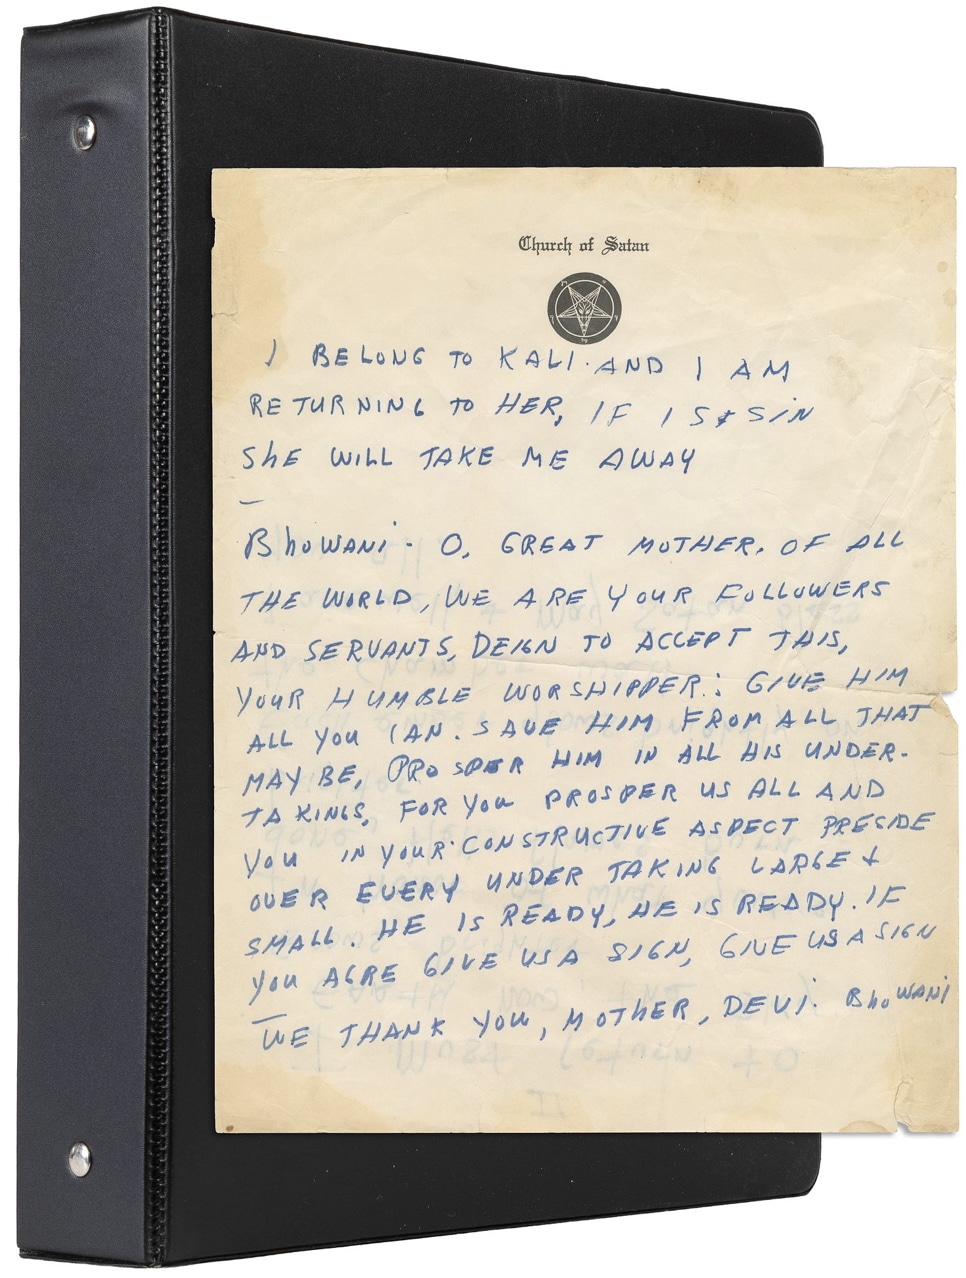 Church of Satan
I BELONG TO KALI. AND I AM
RETURNING TO HER, IF I SIN
ShE WILL TAKE ME AWAY
—
BhOWANi - O, GREAT MOTHER. OF ALL
THE WORLD, WE ARE YOUR FOLLOWERS
AND SERVANTS, DEIGN TO ACCEPT THIS,
YOUR HUMBLE WORSHIPPER: GIVE HIM
ALL YOU CAN. SAVE HIM FROM ALL THAT
MAY BE, PROSPER HIM IN ALL HIS UNDER-
TAKINGS, FOR YOU PROSPER US ALL AND
YOU IN YOUR CONSTRUCTIVE ASPECT PRESIDE
OVER EVERY UNDER TAKING LARGE +
SMALL. HE IS READY, HE IS READY. IF
YOU AGRE GIVE US A SIGN, GIVE US A SIGN
— WE THANK YOU, MOTHER, DEVI. BhOWANi